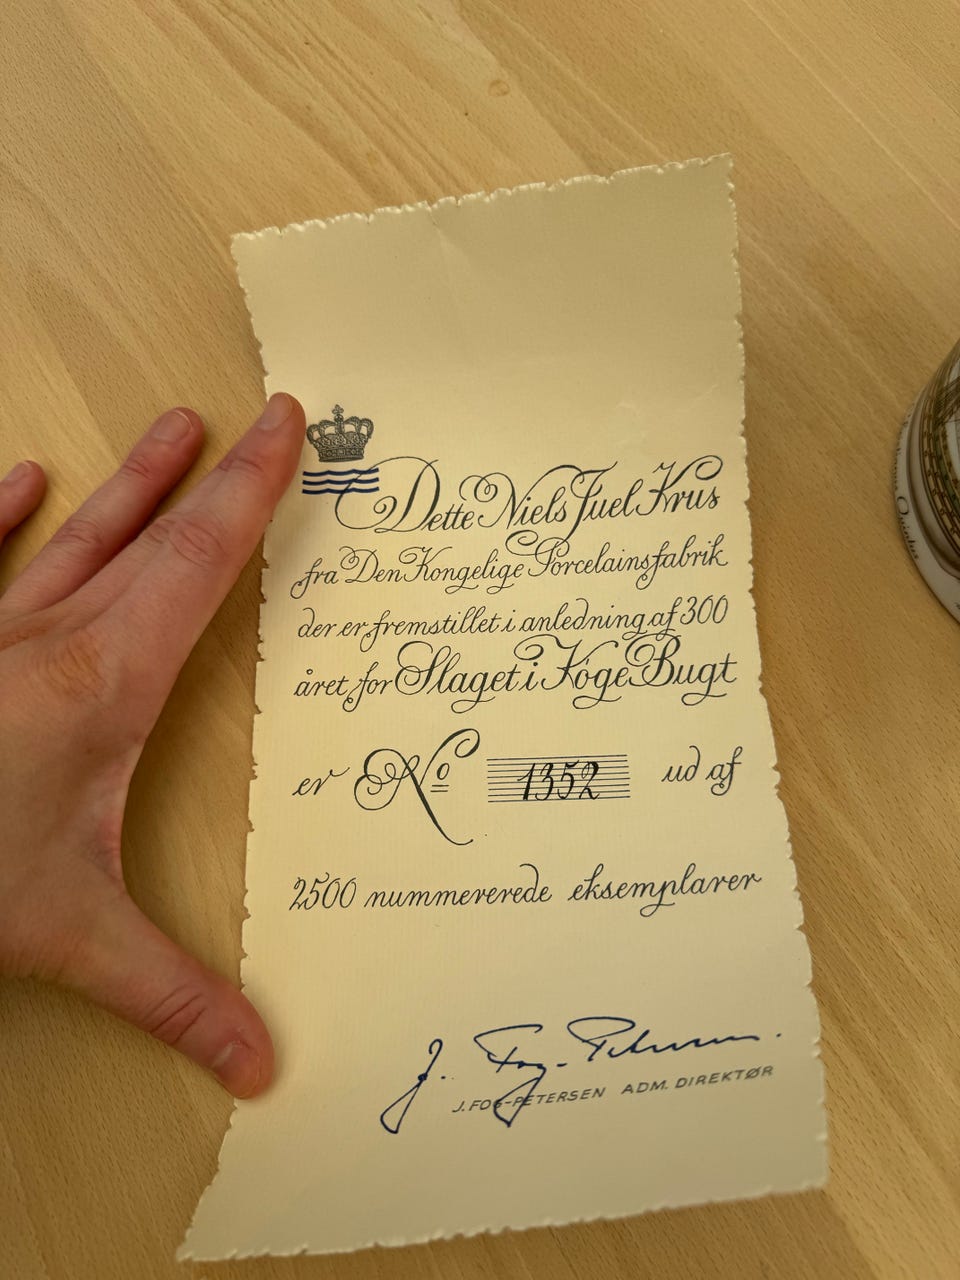 Dette Niels Juel Krus
fra Den Kongelige Porcelainsfabrik
der er fremstillet i anledning af 300
året for Slaget i Köge Bugt
er No 1352 ud af
2500 nummererede eksemplarer
J. Fog-Petersen.
J. FOG-PETERSEN ADM. DIREKTØR
Quintus